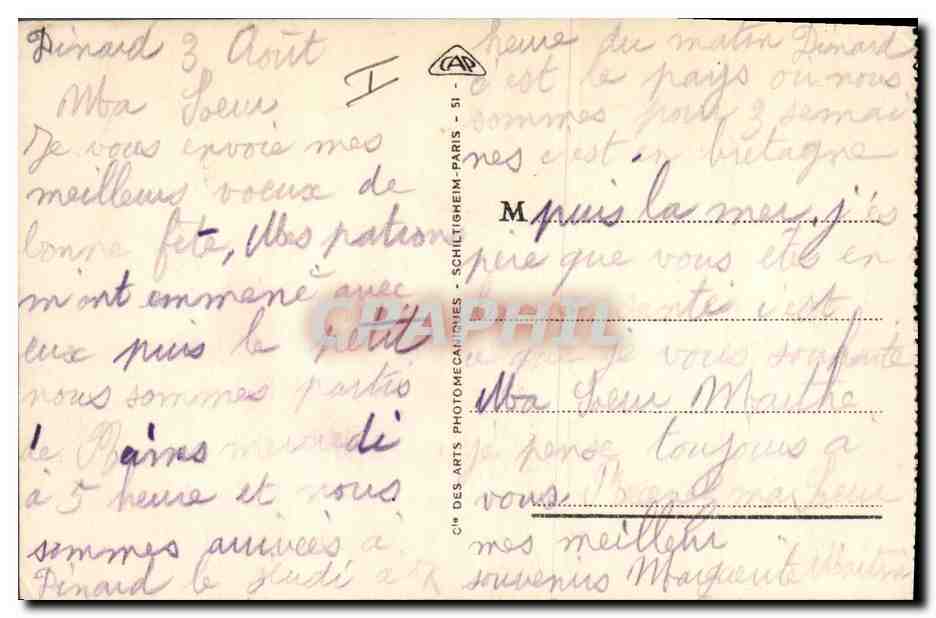 Dinard 3 Août
I
Ma Soeur
Je vous envoie mes
meilleurs voeux de
bonne fête, Mes patrons
m'ont emmené avec
eux puis le petit
nous sommes partis
de Reims mercredi
à 5 heure et nous
sommes arrivées à
Dinard le jeudi à
CAP
Cie DES ARTS PHOTOMECANIQUES - SCHILTIGHEIM-PARIS - 51 -
heure du matin Dinard
c'est le pays où nous
sommes pour 3 semai
nes c'est en bretagne
M puis la mer, j'es
père que vous êtes en
santé c'est
ce que je vous souhaite
Ma Soeur Marthe
je pense toujours à
vous. Recevez ma Soeur
mes meilleur
souvenirs Marguerite
CPAPHIL